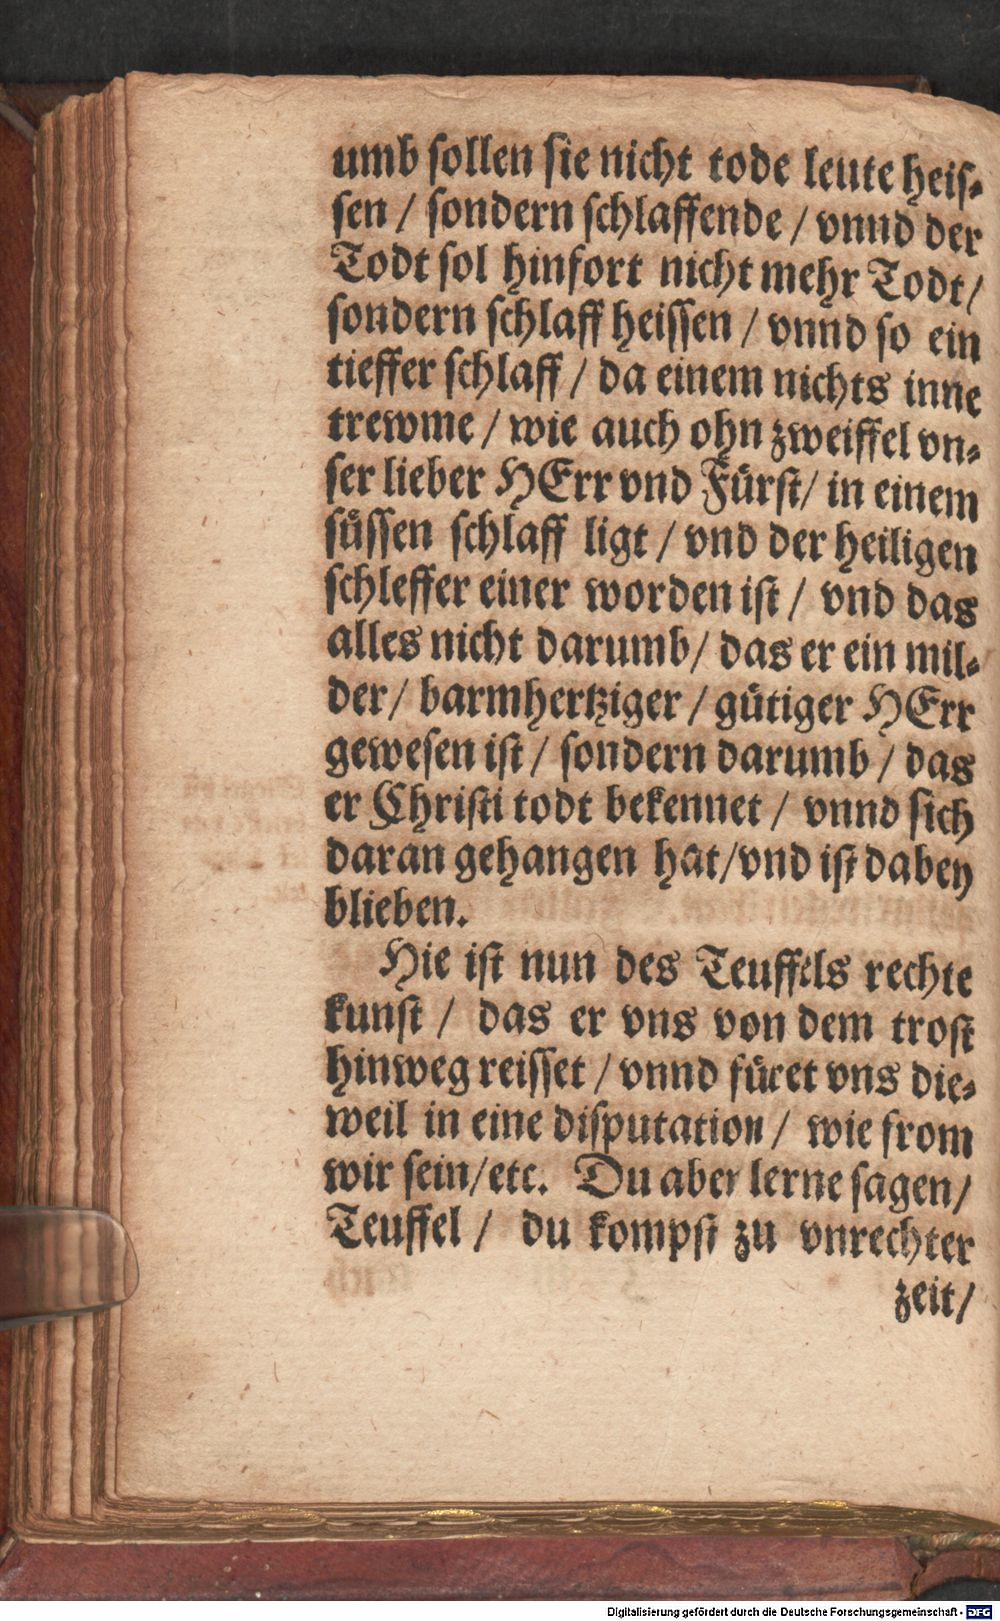 umb sollen sie nicht tode leute heis-
sen / sondern schlaffende / vnnd der
Todt sol hinfort nicht mehr Todt /
sondern schlaff heissen / vnnd so ein
tieffer schlaff / da einem nichts inne
trewme / wie auch ohn zweiffel vn-
ser lieber HErr vnd Fürst / in einem
süssen schlaff ligt / vnd der heiligen
schleffer einer worden ist / vnd das
alles nicht darumb / das er ein mil-
der / barmhertziger / gütiger HErr
gewesen ist / sondern darumb / das
er Christi todt bekennet / vnnd sich
daran gehangen hat / vnd ist dabey
blieben.
Hie ist nun des Teuffels rechte
kunst / das er vns von dem trost
hinweg reisset / vnnd füret vns die-
weil in eine disputation / wie from
wir sein / etc. Du aber lerne sagen /
Teuffel / du kompst zu vnrechter
zeit /
Digitalisierung gefördert durch die Deutsche Forschungsgemeinschaft - DFG